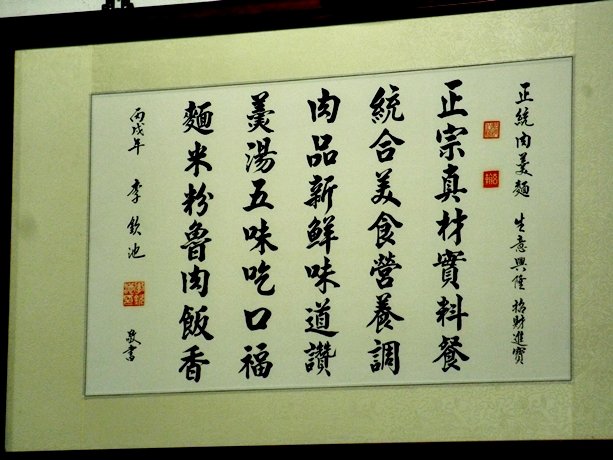 正統肉羹麵 生意興隆 招財進寶
正宗真材實料餐
統合美食營養調
肉品新鮮味道讚
羹湯五味吃口福
麵米粉魯肉飯香
丙戌年 李欽池 敬書